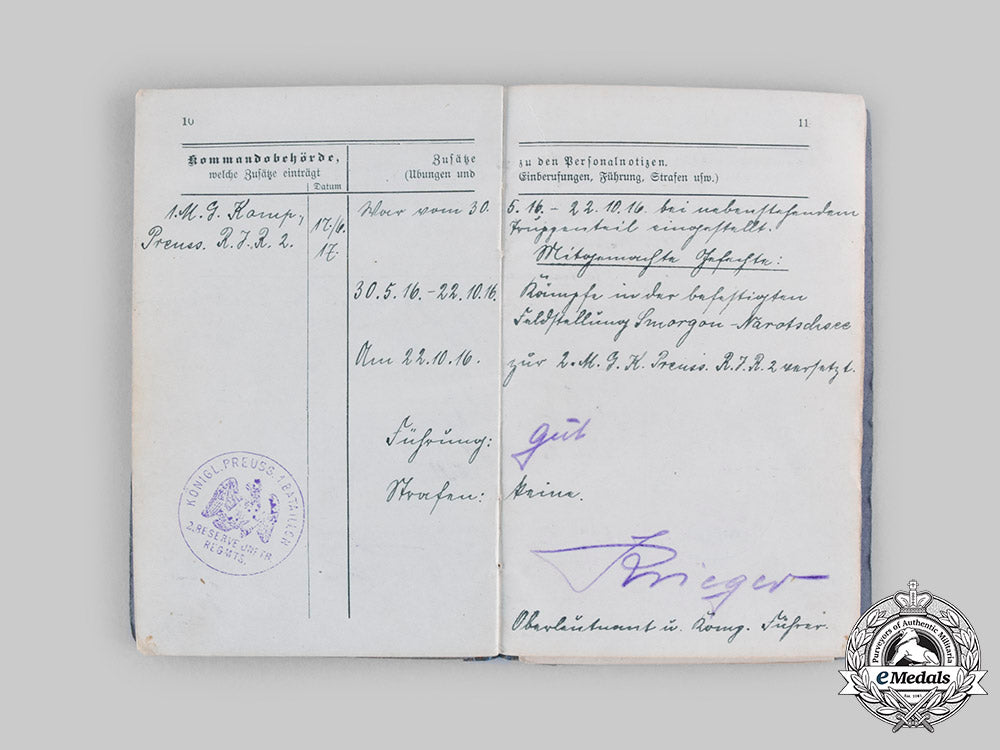 10
Kommandobehörde,
welche Zusätze einträgt
Datum
Zusätze
(Übungen und
1. M. G. Komp.,
Preuss. R. J. R. 2.
17/6.
17.
War vom 30.
30. 5. 16. - 22. 10. 16.
Am 22. 10. 16.
Führung:
Strafen:
KÖNIGL. PREUSS. 1. BATAILLON
2. RESERVE-INFTR.
REGMTS.
11
zu den Personalnotizen.
Einberufungen, Führung, Strafen usw.)
5. 16. - 22. 10. 16. bei nebenstehendem
Truppenteil eingestellt.
Mitgemachte Gefechte:
Kämpfe in der befestigten
Feldstellung Smorgon-Narotschsee
zur 2. M. G. K. Preuss. R. J. R. 2 versetzt.
gut
keine.
Krieger
Oberleutnant u. Komp. Führer.
Purveyors of Authentic Militaria
eMedals